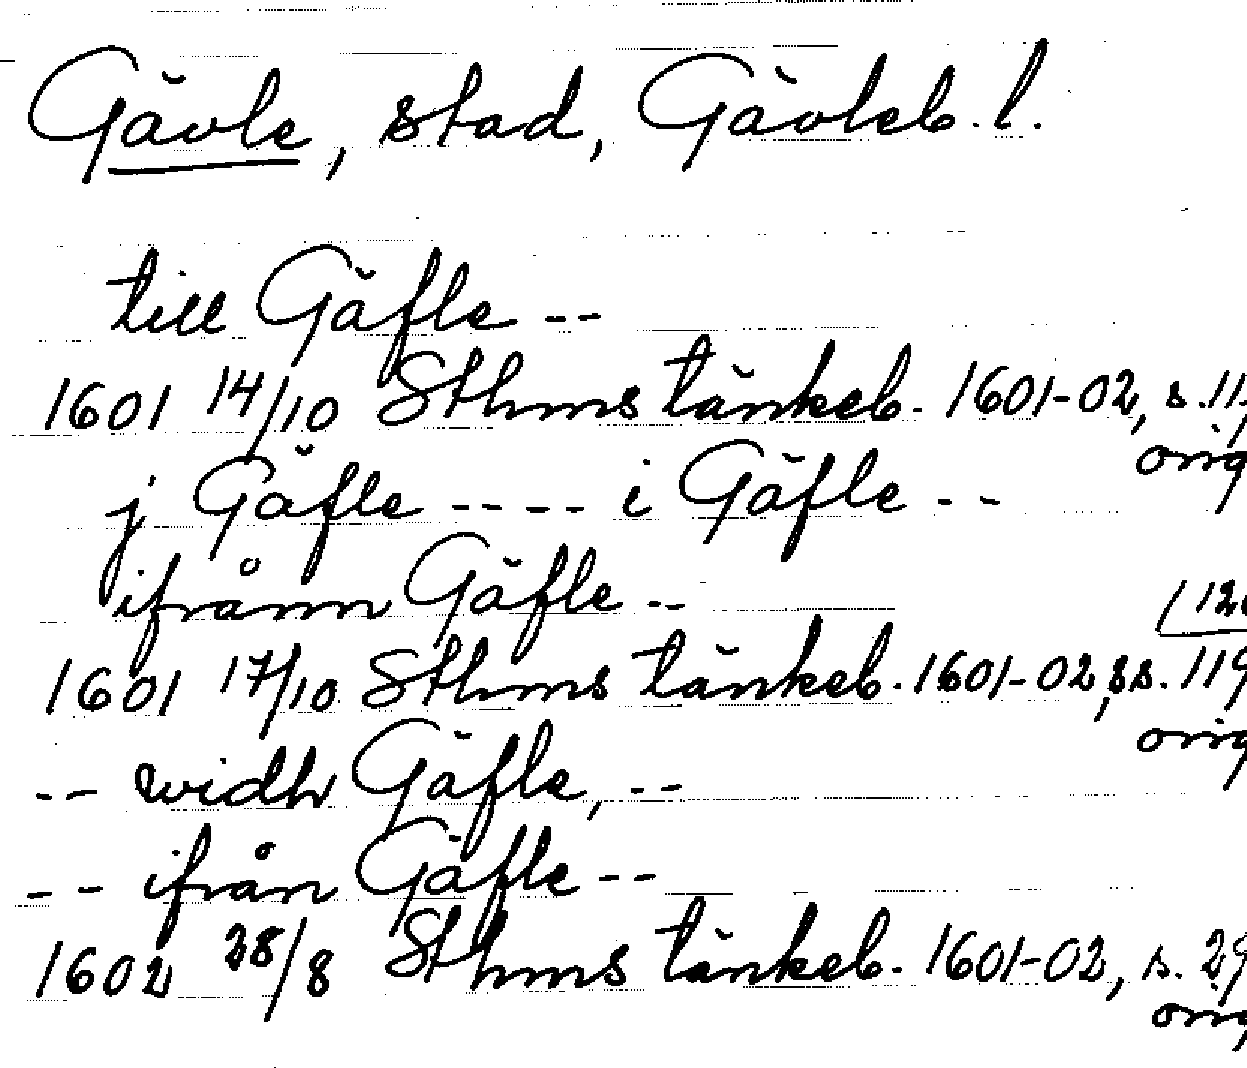 Gävle, stad, Gävleb. l.
till Gäfle --
1601 14/10 Sthms tänkeb. 1601-02, s. 11
orig
j Gäfle ---- i Gäfle --
ifrånn Gäfle --
1601 17/10 Sthms tänkeb. 1601-02, ss. 119
orig
-- widh Gäfle, --
-- ifrån Gäfle --
1602 28/8 Sthms tänkeb. 1601-02, s. 29
orig